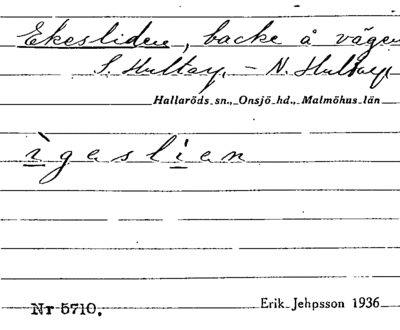 Ekesliden, backe å vägen
S. Hultarp. - N. Hultarp
Hallaröds sn., Onsjö hd., Malmöhus län
ìgaslien
Nr 5710.
Erik Jehpsson 1936